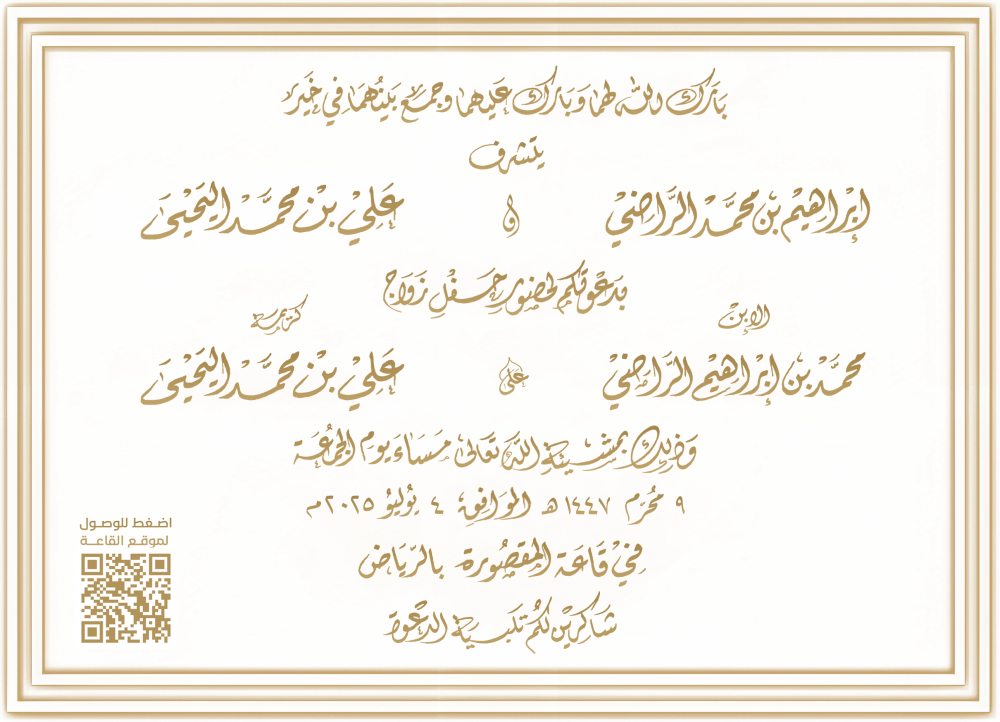 بَارَكَ اللهُ لهما وَبَارَكَ عَليهما وجَمَعَ بَينُهَمَا فِي خَيْر
يتشرف
إبْرَاهيْم بن محمَّد الرَّاضيْ و عَلِيْ بْن محمَّد اليَحْيَىَ
بدَعْوَتكم لحضور حَفْل زَوَاج
الابنْ كريمة
محمَّدْ بن إبْرَاهيْم الرَّاضيْ على عَلِيْ بْن محمَّد اليَحْيَىَ
وَذلِك بمشيئة اللَّه تَعَالىَ مَسَاءَ يَوم الجمُعَة
٩ مُحَرَّم ١٤٤٧هـ الموَافِق: ٤ يُوليُو ٢٠٢٥م
فيْ قَاعَة المقصُورة بالرّيَاض
شَاكرِيْن لكُم تلبية الدعْوة
اضغط للوصول
لموقع القاعة